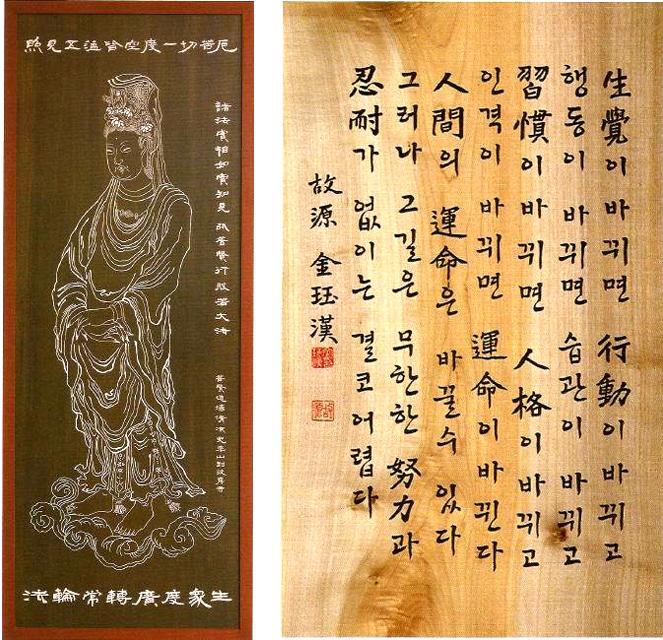 照見五蘊皆空度一切苦厄
諸法實相如實知見 普賢行般若大法
法輪常轉廣度眾生
生覺이 바뀌면 行動이 바뀌고
행동이 바뀌면 습관이 바뀌고
習慣이 바뀌면 人格이 바뀌고
인격이 바뀌면 運命이 바뀐다
人間의 運命은 바꿀수 있다
그러나 그길은 무한한 努力과
忍耐가 없이는 결코 어렵다
故源 金珏漢